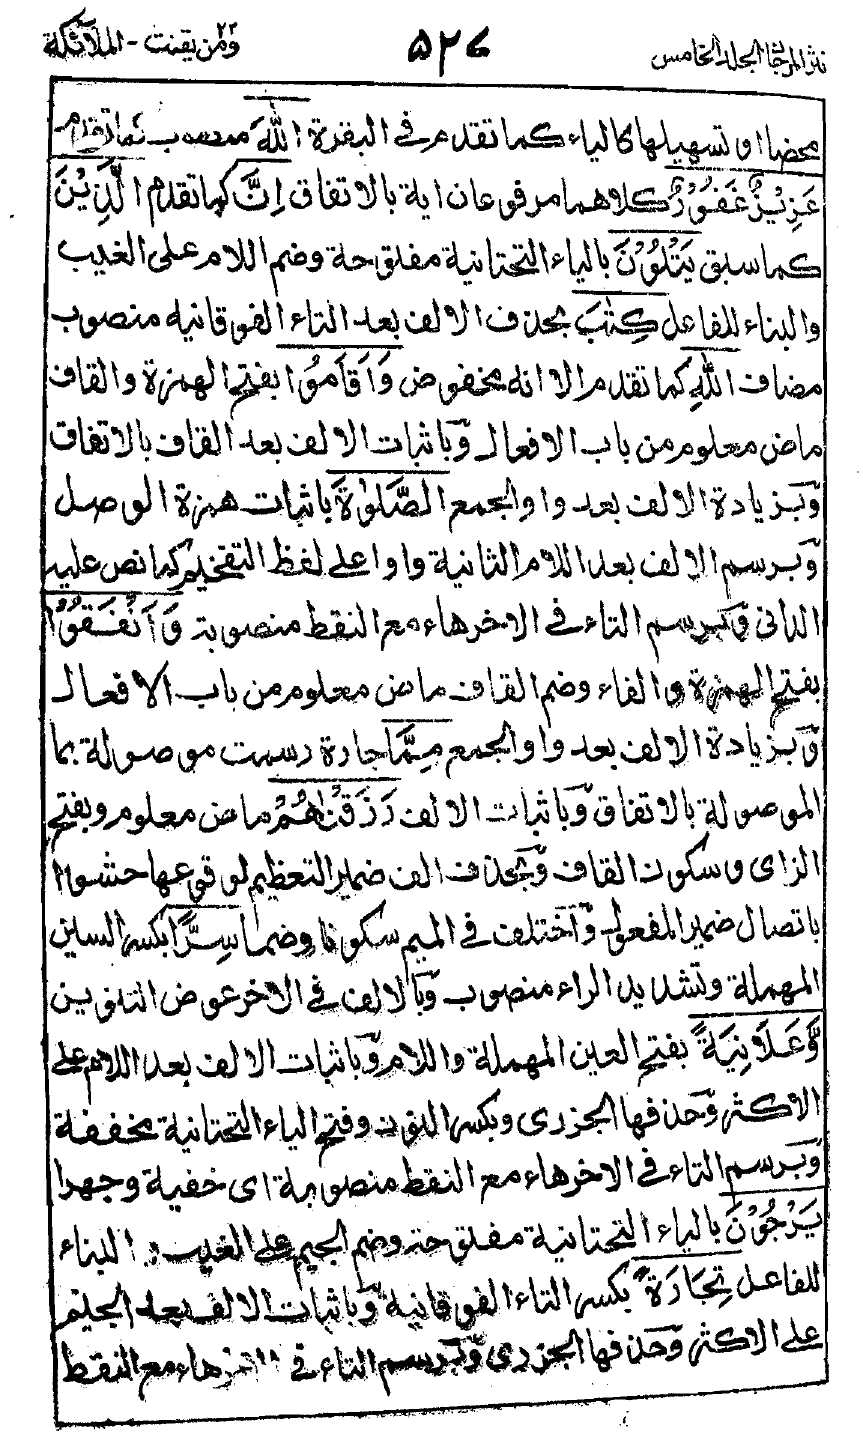 نثر المرجان الجلد الخامس ٥٢٧ ومن يقنت ٢٢ - الملآئكة
محضا او تسهيلها كالياء كما تقدم في البقرة اللهَ منصوب كما تقدم
عَزِيْزٌ غَفُوْرٌ كلاهما مرفوعان اية بالاتفاق اِنَّ كما تقدم الَّذِيْنَ
كما سبق يَتْلُوْنَ بالياء التحتانية مفتوحة وضم اللام على الغيب
والبناء للفاعل كِتٰبَ بحذف الالف بعد التاء الفوقانية منصوب
مضاف اللّٰهِ كما تقدم الا انه مخفوض وَاَقَامُوا بفتح الهمزة والقاف
ماض معلوم من باب الافعال وّباثبات الالف بعد القاف بالاتفاق
وّبزيادة الالف بعد واو الجمع الصَّلٰوةَ باثبات همزة الوصل
وّبرسم الالف بعد اللام الثانية واوا على لفظ التفخيم كما نص عليه
الداني وّبرسم التاء في الاخر هاء مع النقط منصوبة وَاَنْفَقُوْا
بفتح الهمزة والفاء وضم القاف ماض معلوم من باب الافعال
وّبزيادة الالف بعد واو الجمع مِمَّا جارة رسمت موصولة بما
الموصولة بالاتفاق وّباثبات الالف رَزَقْنٰهُمْ ماض معلوم وبفتح
الزاى وسكون القاف وّبحذف الف ضمير التعظيم لوقوعها حشوا
باتصال ضمير المفعول وّاختلف في الميم سكونا وضما سِرًّا بكسر السين
المهملة وتشديد الراء منصوب وّبالالف في الاخر عوض التنوين
وَّعَلَانِيَةً بفتح العين المهملة واللام وّباثبات الالف بعد اللام على
الاكثر وّحذفها الجزرى وبكسر النون وفتح الياء التحتانية مخففة
وّبرسم التاء في الاخر هاء مع النقط منصوبة اى خفية وجهرا
يَرْجُوْنَ بالياء التحتانية مفتوحة وضم الجيم على الغيب والبناء
للفاعل تِجَارَةً بكسر التاء الفوقانية وّباثبات الالف بعد الجيم
على الاكثر وّحذفها الجزرى وّبرسم التاء في الاخر هاء مع النقط